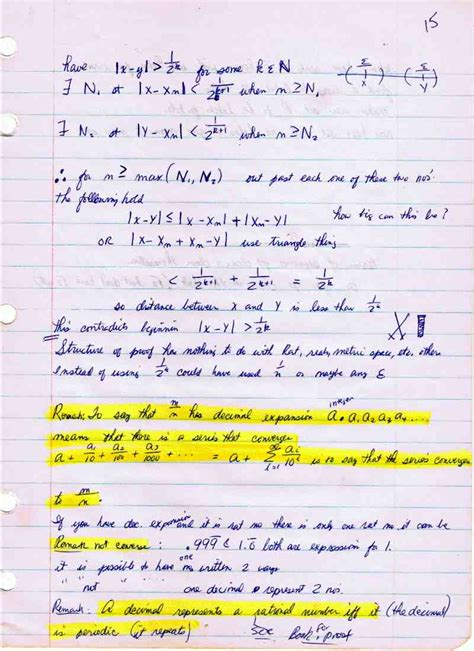 15
have |x-y| > 1/2^k for some k ∈ N
∃ N₁ st |x-xₙ| < 1/2^(k+1) when n ≥ N₁
-( ε | x )- ( ε | y )
∃ N₂ st |y-xₙ| < 1/2^(k+1) when n ≥ N₂
∴ for n ≥ max(N₁, N₂) out past each one of these two no's
the following hold
|x-y| ≤ |x-xₙ| + |xₙ-y| how big can this be?
OR |x-xₙ+xₙ-y| use triangle thing
< 1/2^(k+1) + 1/2^(k+1) = 1/2^k
so distance between x and y is less than 1/2^k
this contradicts |x-y| > 1/2^k
Structure of proof has nothing to do with Rat, reals, metric space, etc.
Instead of using 1/2^k could have used 1/n or maybe any ε
Remark: To say that m/n has decimal expansion a. a₁ a₂ a₃ a₄ ....
integer
means that there is a series that converges
a + a₁/10 + a₂/100 + a₃/1000 + ... = a + Σ aᵢ/10ⁱ is to say that the series converges
to m/n.
If you have dec. expansion and it is rat no there is only one rat no it can be
Remark not converse: .999 & 1.0 both are expression for 1.
it is possible to have one written 2 ways
" not " one decimal represent 2 nos.
Remark: A decimal represents a rational number iff it (the decimal)
is periodic (it repeats) See Book for proof